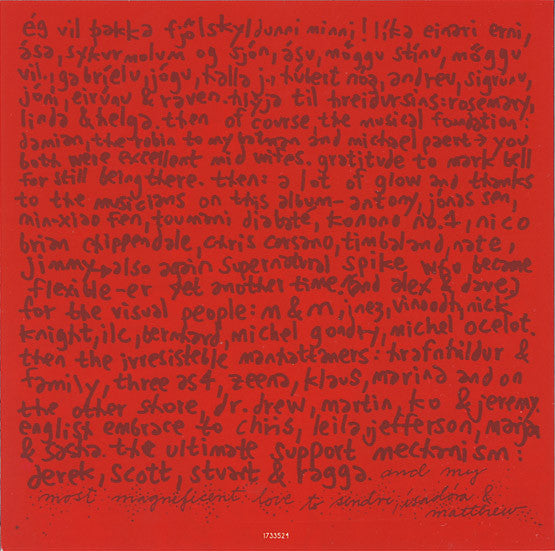 ég vil þakka fjölskyldunni minni! líka einari erni,
ása, sykurmolum og sjón, ásu, möggu stínu, möggu
vil., gabríelu, jógu, halla j., hubert nóa, andreu, sigrúnu,
jóni, eirúnu & raven. hlýja til hreiðursins: rosemary,
linda & helga. then of course the musical foundation:
damian, the robin to my batman and michael paert → you
both were excellent mid wifes. gratitude to mark bell
for still being there. then: a lot of glow and thanks
to the musicians on this album- antony, jónas sen,
min-xiao fen, toumani diabate, konono no.1, nico
brian chippendale, chris corsano, timbaland, nate,
jimmy, also again supernatural spike who became
flexible-er yet another time (and alex & dave)
for the visual people: m & m, inez, vinoodh, nick
knight, ilc, bernhard, michel gondry, michel ocelot.
then the irresisteble manhattaners: hrafnhildur &
family, three as4, zeena, klaus, marina and on
the other shore, dr. drew, martin, ko & jeremy.
english embrace to chris, leila jefferson, marjan
& sasha. the ultimate support mechanism:
derek, scott, stuart & ragga. and my
most magnificent love to sindri, isadóra &
matthew
1733524